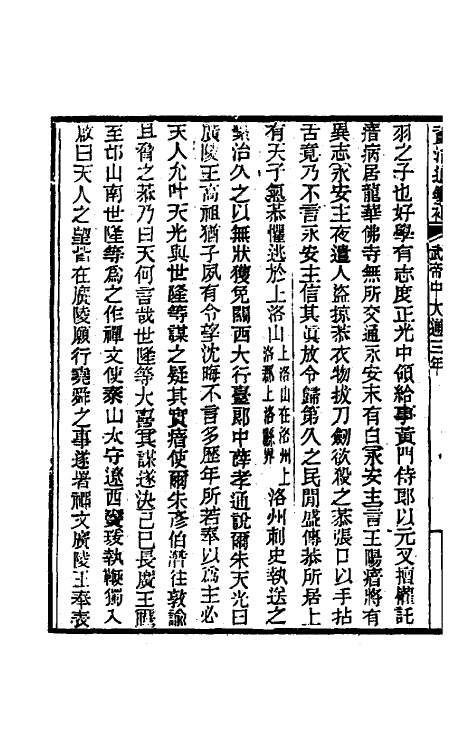 資治通鑑補 武帝中大通三年
羽之子也好學有志度正光中領給事黃門侍郎以元叉擅權託
瘖病居龍華佛寺無所交通永安末有白永安主言王陽瘖將有
異志永安主夜遣人盜掠恭衣物拔刀劒欲殺之恭張口以手拈
舌竟乃不言永安主信其真放令歸第久之民間盛傳恭所居上
有天子氣恭懼逃於上洛山上洛山在洛州上洛郡上洛縣界洛州刺史執送之
繫治久之以無狀獲免關西大行臺郎中薛孝通說爾朱天光曰
廣陵王高祖猶子夙有令望沈晦不言多歷年所若奉以為主必
天人允叶天光與世隆等謀之疑其實瘖使爾朱彥伯潛往敦諭
且脅之恭乃曰天何言哉世隆等大喜其謀遂決己巳長廣王曄
至邙山南世隆等為之作禪文使泰山太守遼西竇瑗執鞭獨入
啟曰天人之望皆在廣陵願行堯舜之事遂署禪文廣陵王奉表